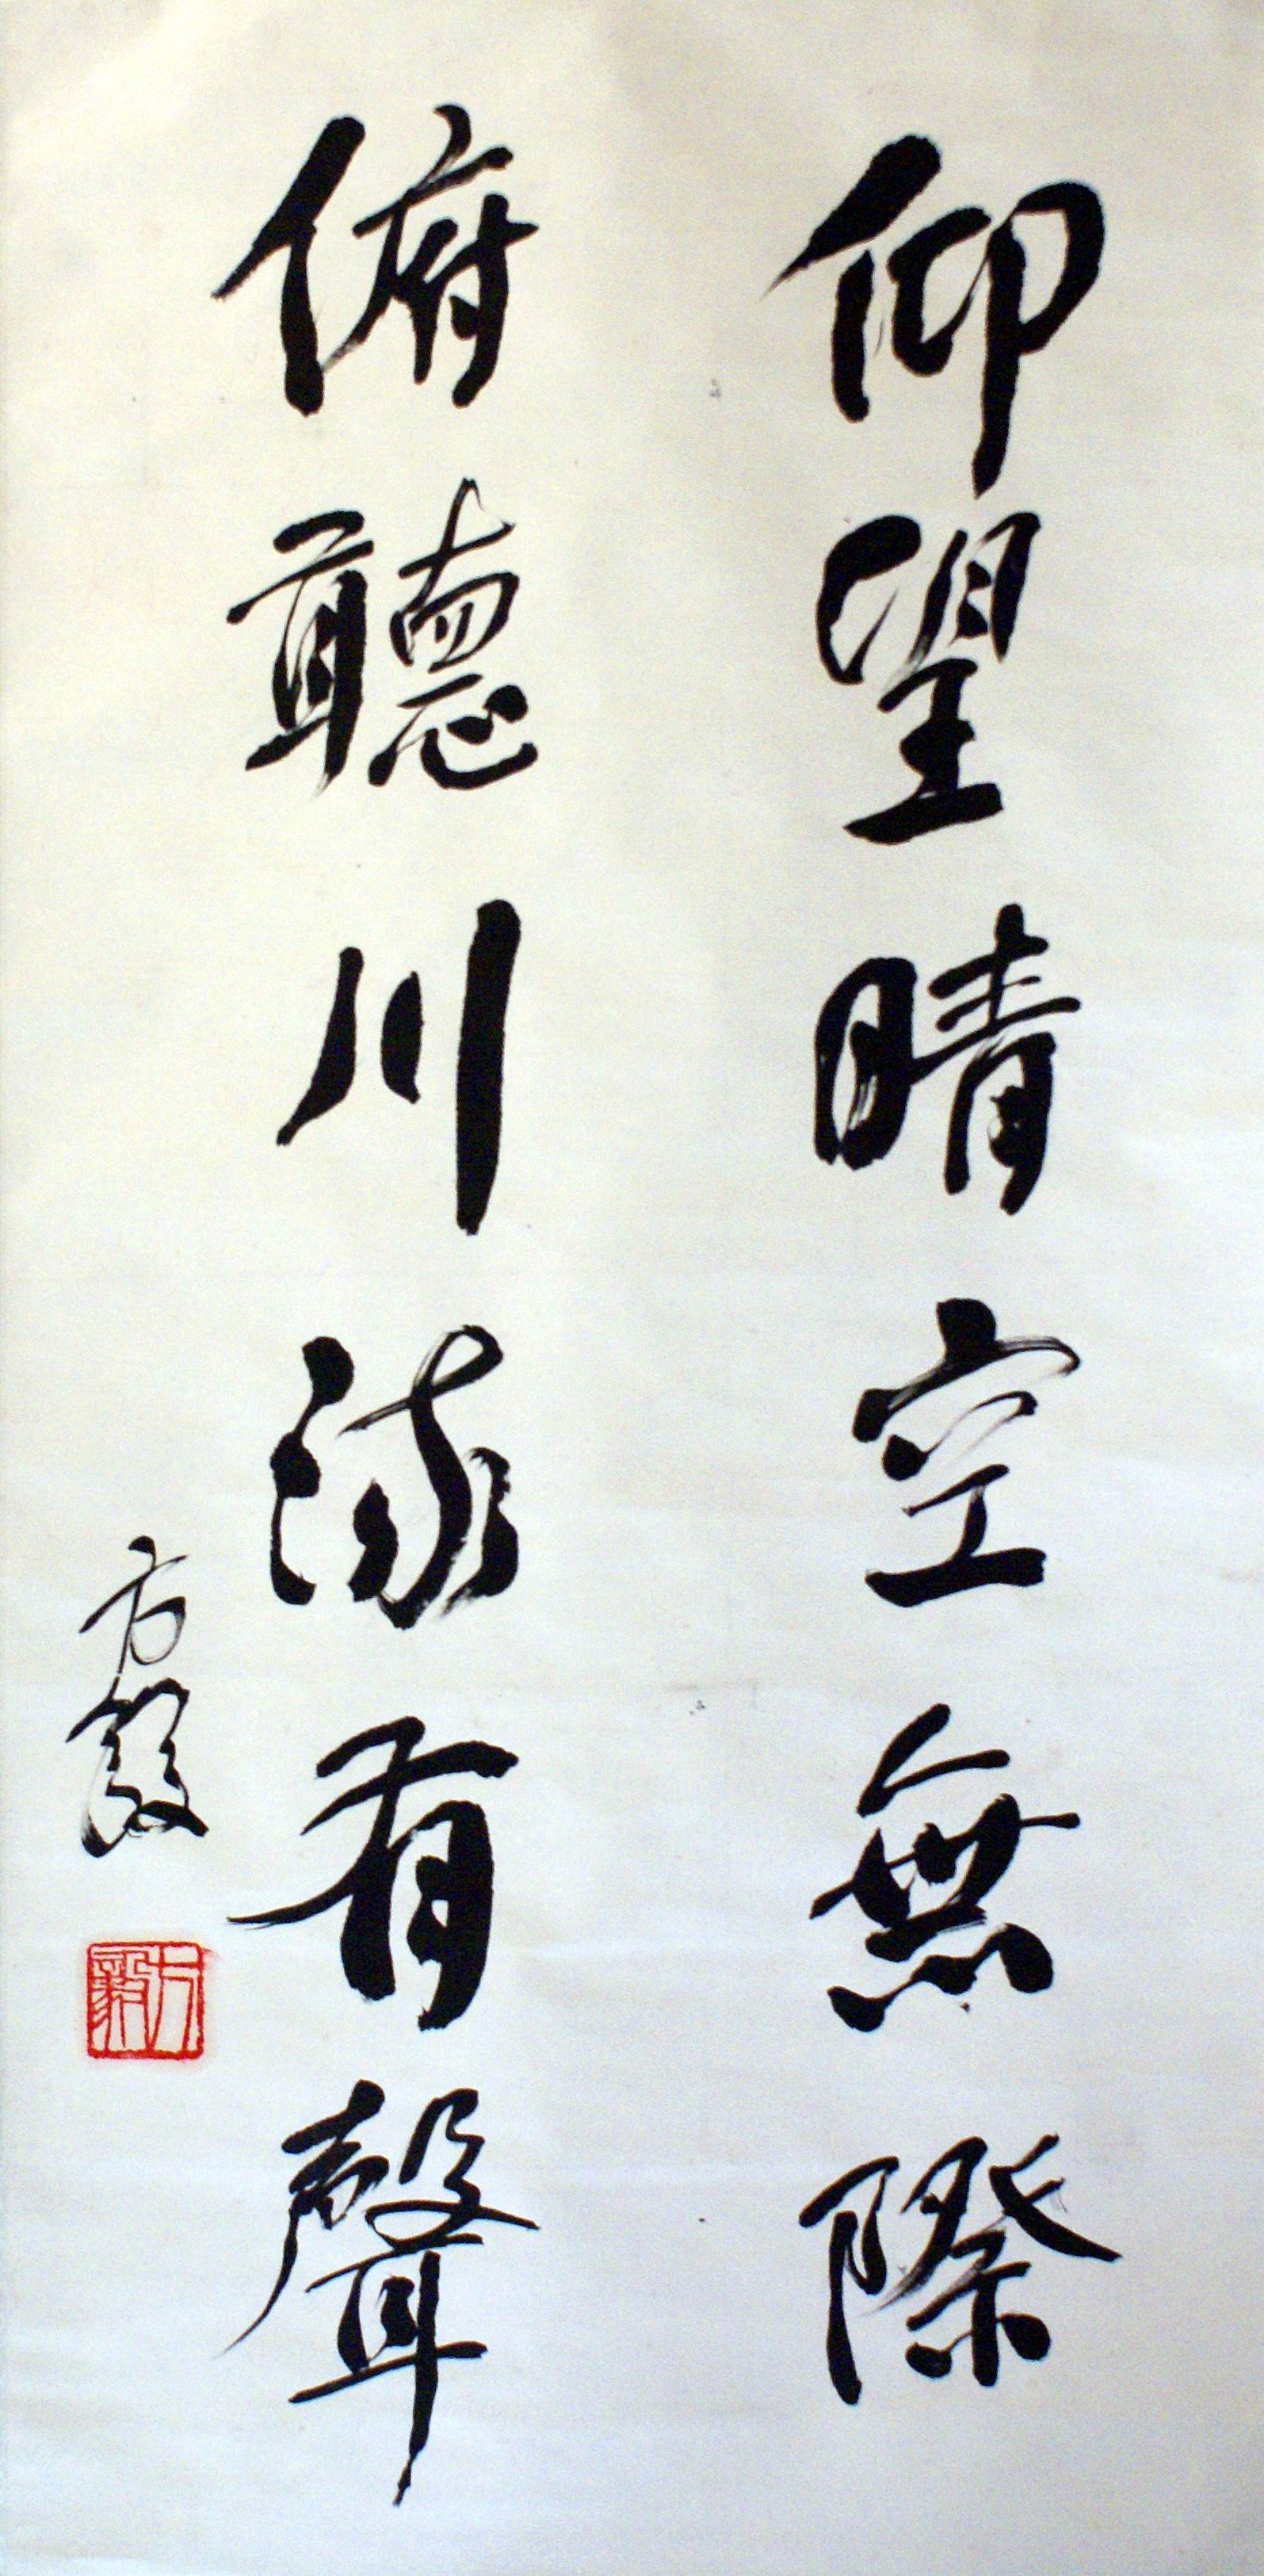 仰望晴空無際
俯聽川流有聲
方毅
方毅